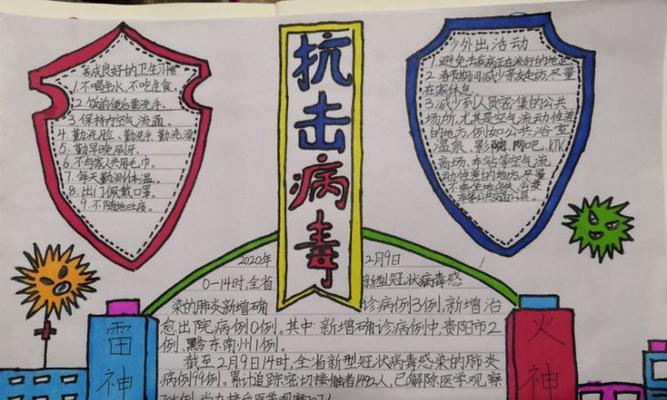 养成良好的卫生习惯
1.不喝生水,不吃生食.
2.饭前便后要洗手.
3.保持内空气流通.
4.勤洗脸、勤洗手、勤洗澡
5.勤早晚刷牙.
6.不与家人共用毛巾.
7.每天勤测体温.
8.出门佩戴口罩.
9.不随地吐痰.
抗击病毒
少外出活动
1.避免去疾病正在流行的地区.
2.春节期间减少亲友走访,尽量
在家休息.
3.减少到人员密集的公共
场所,尤其是空气流动性差
的地方,例如公共浴室
温泉、影院、网吧、KTV
商场、车站等空气流
动性差的地方,尽量
2020年
2月9日
0-14时,全省
新型冠状病毒感
染的肺炎新增确
诊病例3例,新增治
愈出院病例0例.其中:新增确诊病例中,贵阳市2
例、黔东南州1例.
截至2月9日14时,全省新型冠状病毒感染的肺炎
病例99例.累计追踪密切接触者1492人,已解除医学观察
雷神
火神